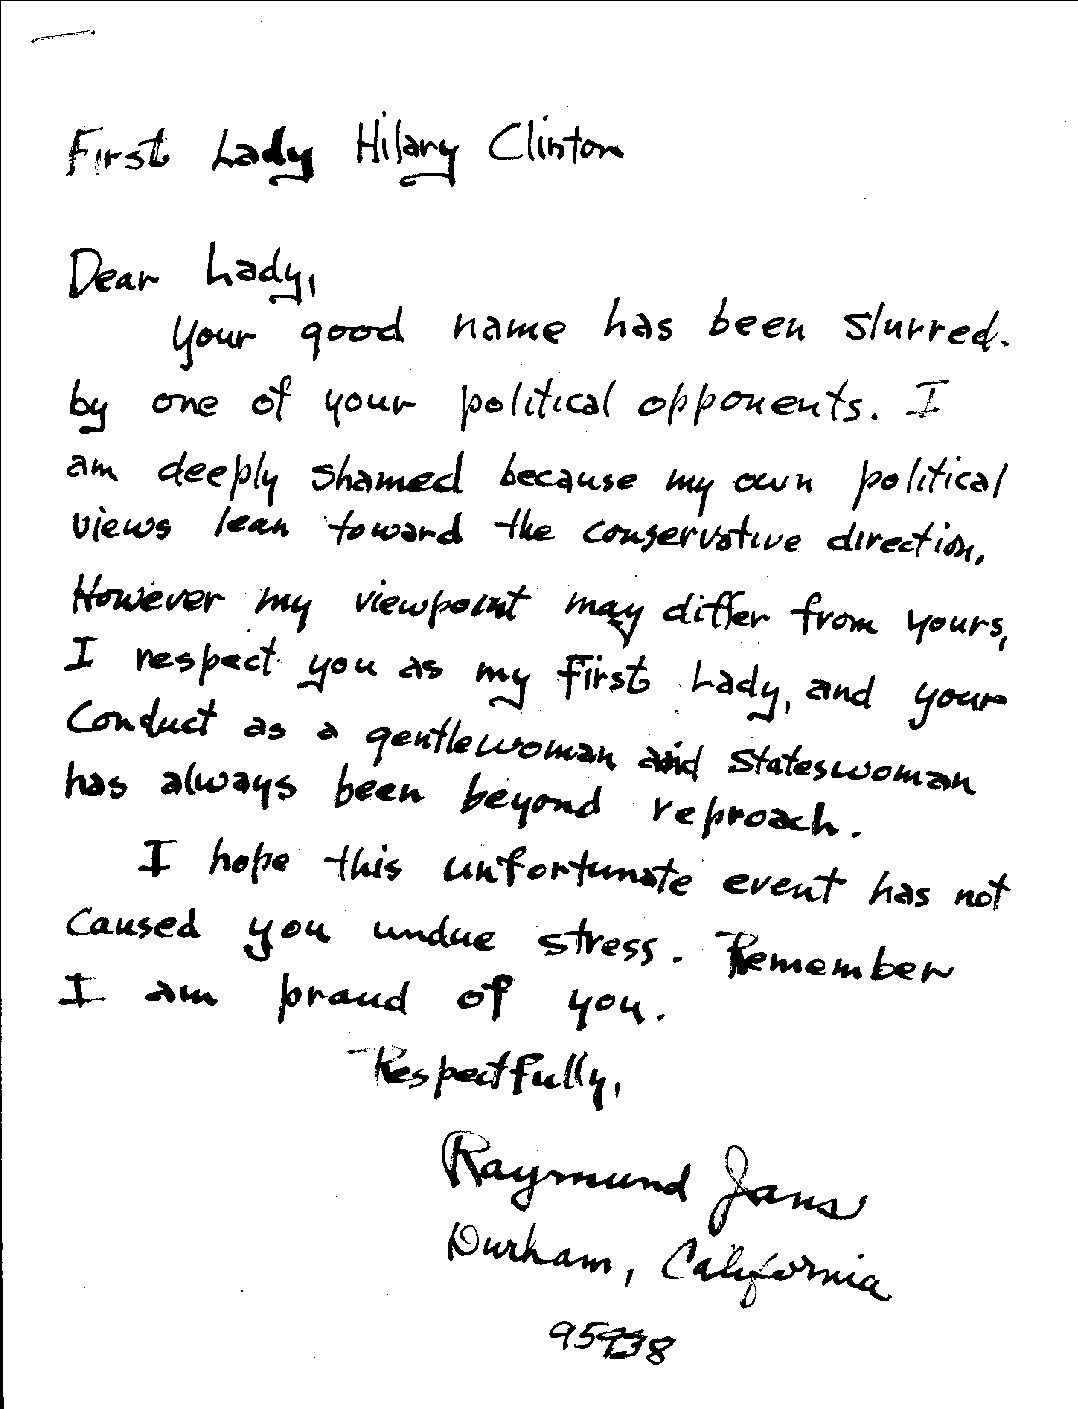 First Lady Hilary Clinton
Dear Lady,
Your good name has been slurred.
by one of your political opponents. I
am deeply shamed because my own political
views lean toward the conservative direction.
However my viewpoint may differ from yours,
I respect you as my First Lady, and your
Conduct as a gentlewoman and stateswoman
has always been beyond reproach.
I hope this unfortunate event has not
caused you undue stress. Remember
I am proud of you.
Respectfully,
Raymund Jans
Durham, California
95938